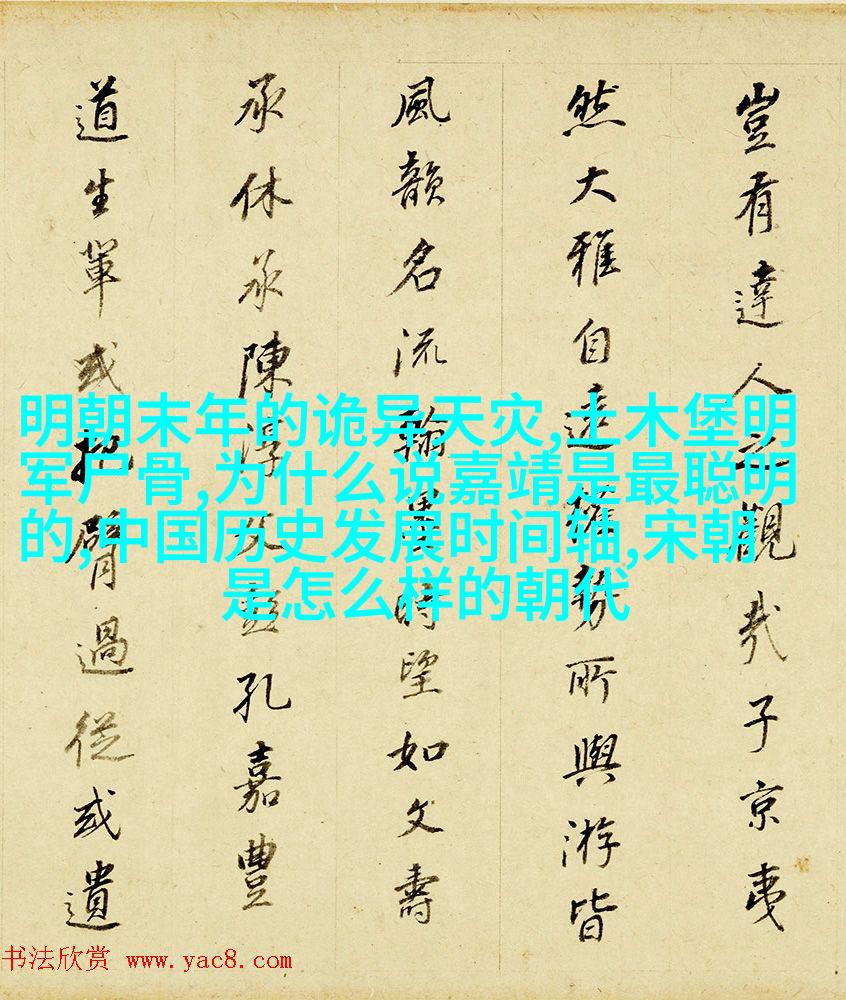 豈有達人之觀哉子京夷
然大雅自遠權勢所與游皆
風韻名流翰墨時望如文壽
承休承陳淳父彭孔嘉豐
道生軰或把臂過從或遺
明朝末年的诡异天灾,土木堡明
军尸骨,为什么说嘉靖是最聪明
的,中国历史发展时间轴,宋朝
是怎么样的朝代
书法欣赏 www.yac8.com